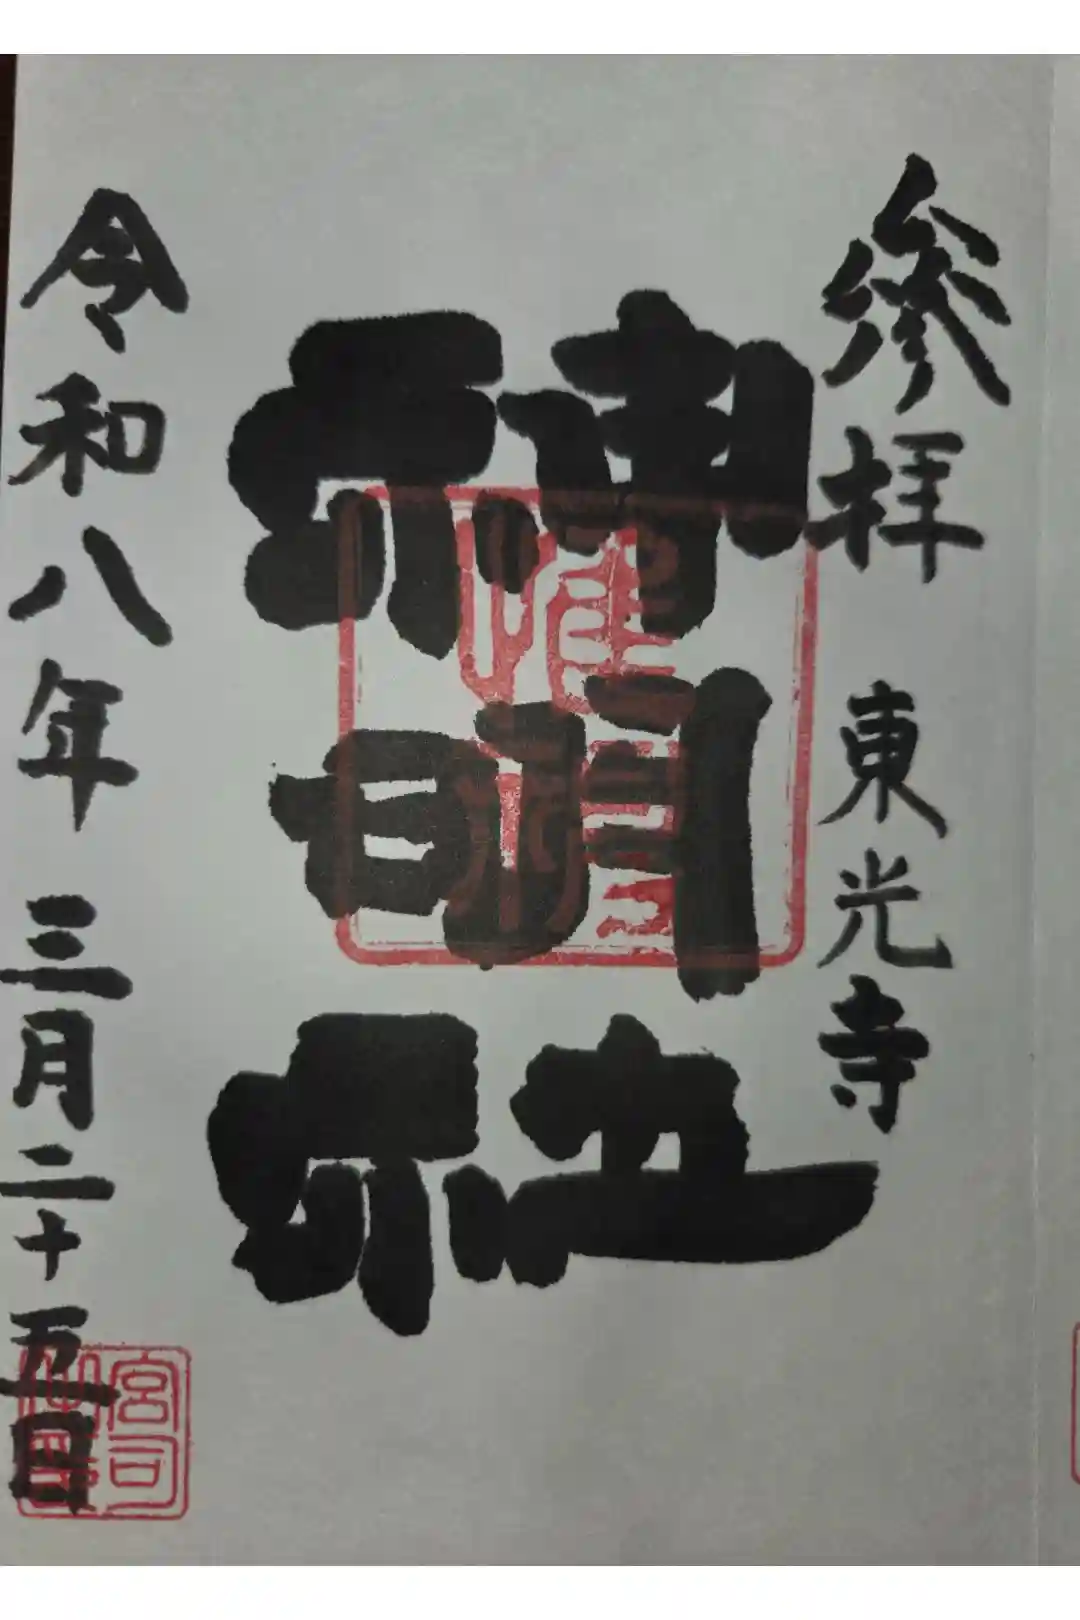 参拝 東光寺
神明社
令和八年三月二十五日
宮司